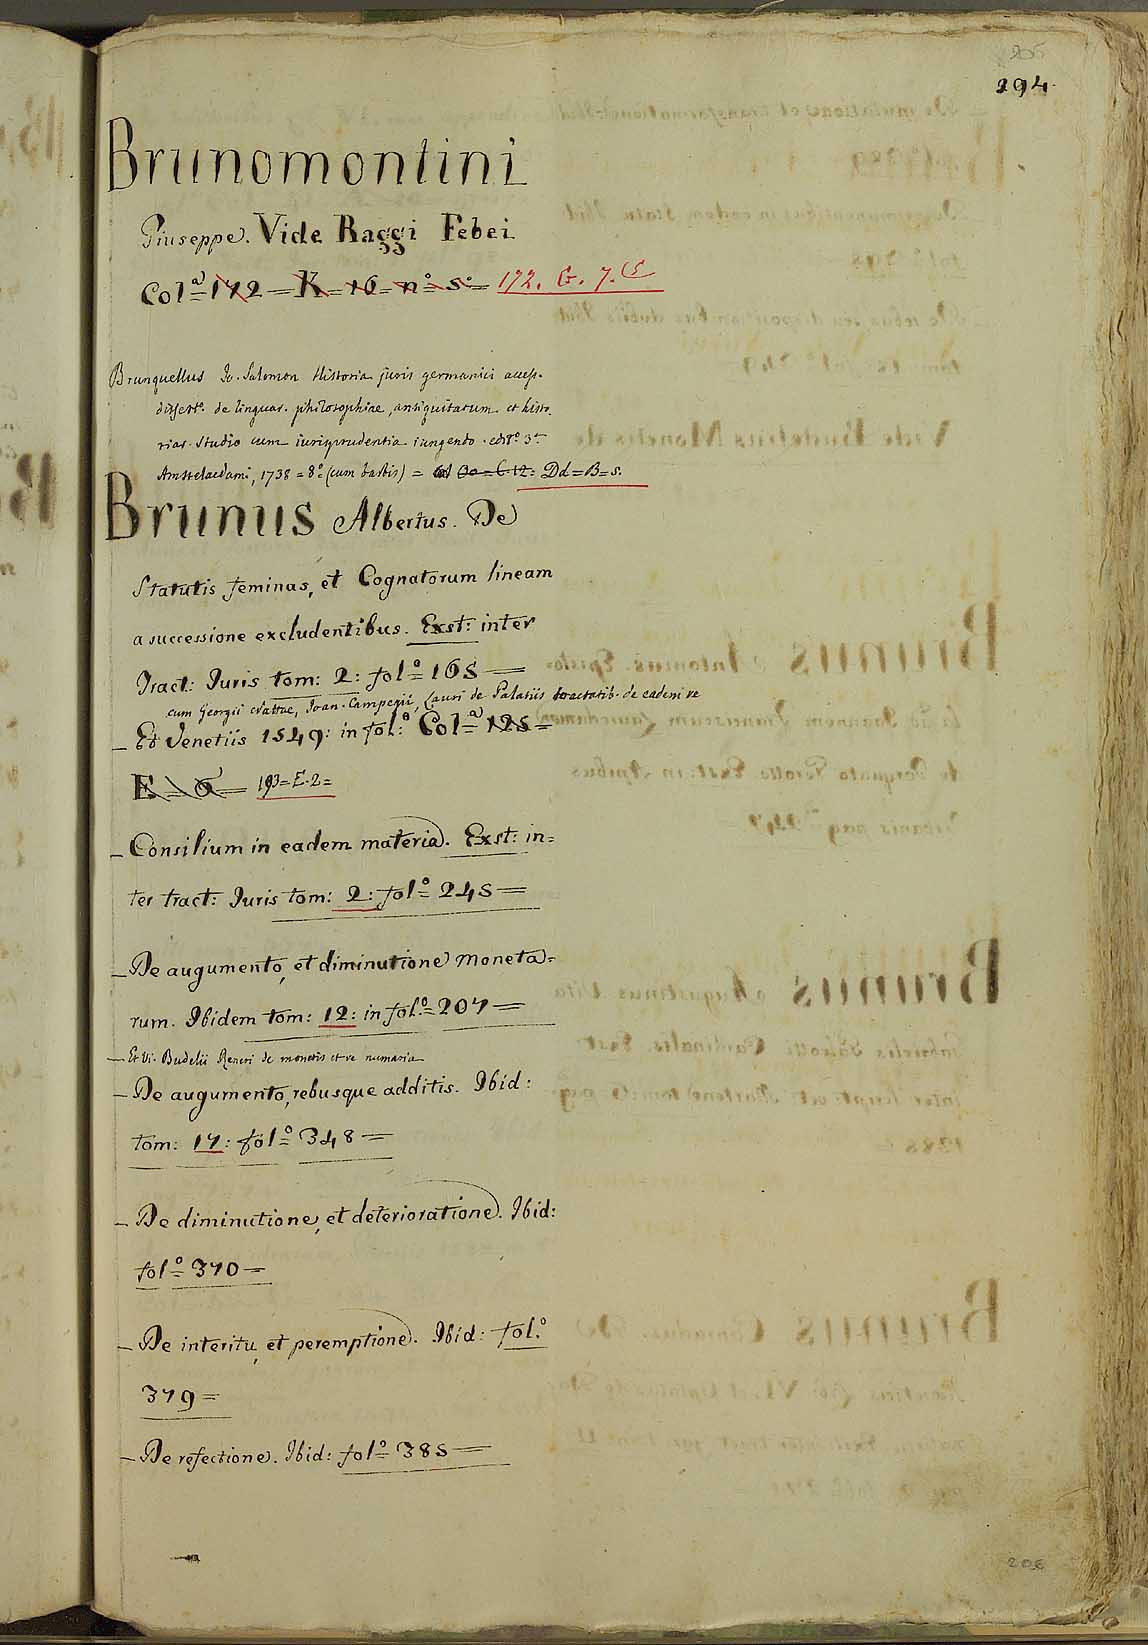 206
294.
Brunomontini
Giuseppe. Vide Raggi Febei
Col.ª 172 = K = 16 = n.º = 5.º = 172. G. 7.
Brunquellus Io. Salomon Historia juris germanici access.
dissert.º de linguar. philosophiae, antiquitatum et histo.
riar. studio cum jurisprudentia iungendo. edit.º 3.ª
Amstelaedami, 1738 = 8.º (cum barbis) = Dd = B = 5.
Brunus Albertus. De
Statutis feminas, et Cognatorum lineam
a successione excludentibus. Exst: inter
Tract: Juris tom: 2: fol.º 165 =
cum Georgii Nattae, Joan. Campegii, Cauri de Palatiis tractatib. de eadem re
_ Et Venetiis 1549: in fol.º Col.ª 125 =
E = 6 = 193 = E. 2 =
_ Consilium in eadem materia. Exst: in=
ter tract: Juris tom: 2: fol.º 245 =
_ De augumento, et diminutione moneta=
rum. Ibidem tom: 12: in fol.º = 207 =
_ Et Vi. Budelii Reneri de monetis et re numaria
_ De augumento, rebusque additis. Ibid:
tom: 17: fol.º 348 =
_ De diminutione, et deterioratione. Ibid:
fol.º 370 =
_ De interitu, et peremptione. Ibid: fol.º
379 =
_ De refectione. Ibid: fol.º 385 =
206